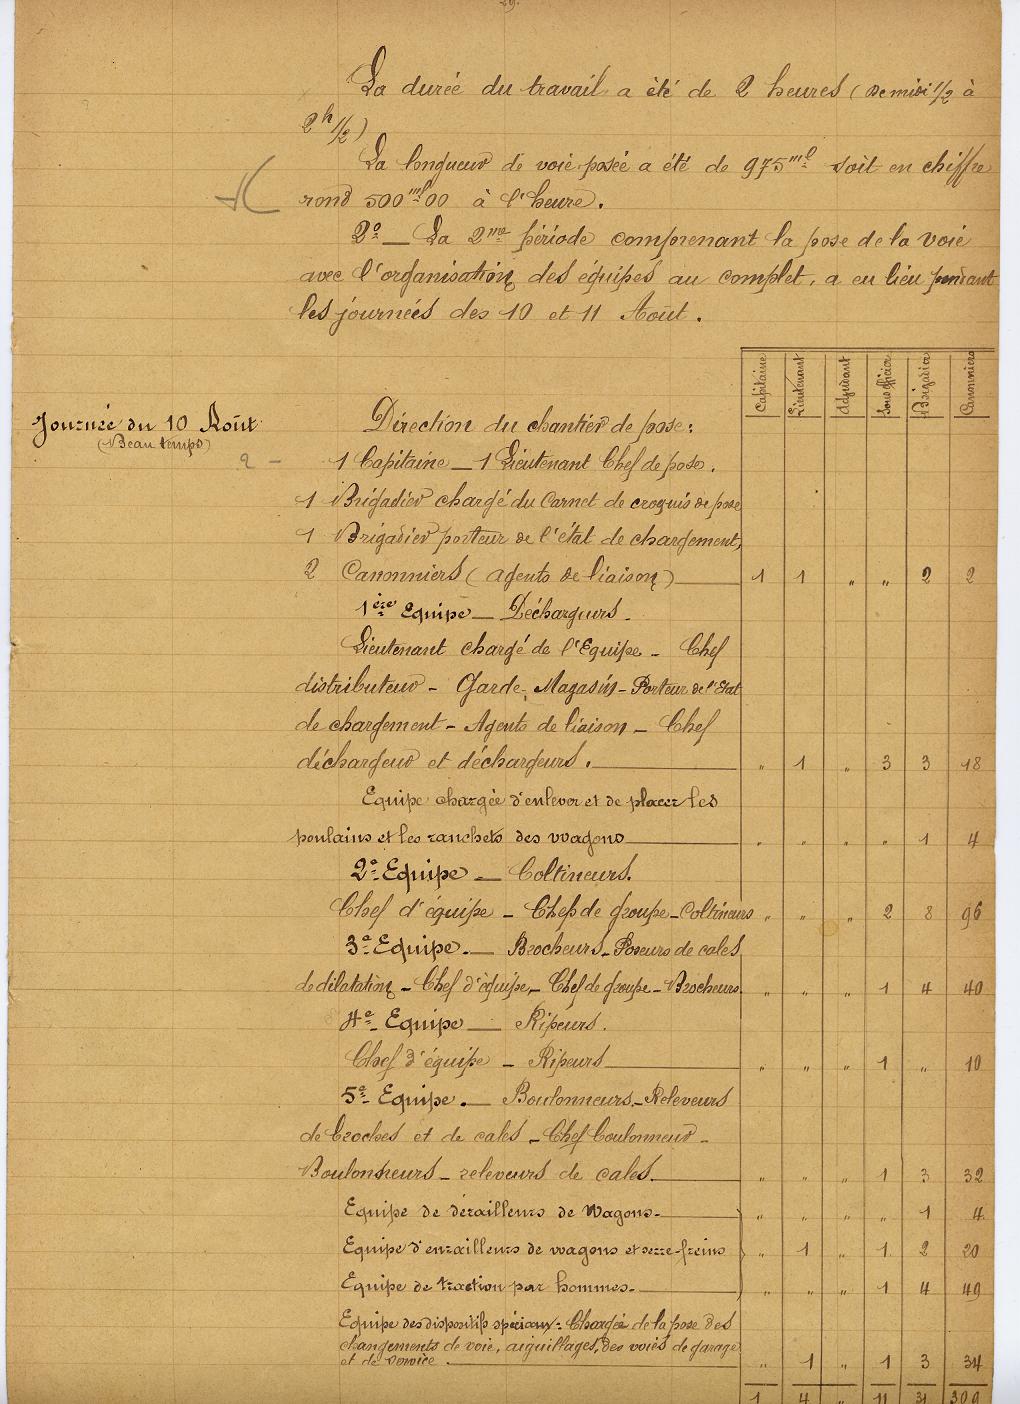 29.
La durée du travail a été de 2 heures (de midi 1/2 à
2h 1/2)
La longueur de voie posée a été de 975ml soit en chiffre
rond 500ml00 à l'heure.
2o _ La 2me période comprenant la pose de la voie
avec l'organisation des équipes au complet, a eu lieu pendant
les journées des 10 et 11 Août.
Capitaine Lieutenant Adjudant Sous officier Brigadier Canonniers
Journée du 10 Août
(Beau temps)
Direction du chantier de pose:
2 -
1 Capitaine _ 1 Lieutenant Chef de pose.
1 Brigadier chargé du Carnet de croquis de pose
1 Brigadier porteur de l'état de chargement,
2 Canonniers (agents de liaison) 1 1 " " 2 2
1ère Equipe _ Déchargeurs _
Lieutenant chargé de l'Equipe - Chef
distributeur - Garde, Magasin - Porteur de l'Etat
de chargement - Agents de liaison - Chef
déchargeur et déchargeurs. " 1 " 3 3 18
Equipe chargée d'enlever et de placer les
poulains et les ranchets des wagons " " " " 1 4
2e Equipe _ Coltineurs.
Chef d'équipe - Chefs de groupe - Coltineurs " " " 2 8 96
3e Equipe. _ Brocheurs - Poseurs de cales
de dilatation - Chef d'équipe - Chef de groupe - Brocheurs. " " " 1 4 40
4e Equipe _ Ripeurs.
Chef d'équipe - Ripeurs " " " 1 " 10
5e Equipe. _ Boulonneurs - Releveurs
de broches et de cales - Chef boulonneur -
Boulonneurs - releveurs de cales. " " " 1 3 32
Equipe de dérailleurs de Wagons. " " " " 1 4
Equipe d'enrailleurs de wagons et serre-freins " 1 " 1 2 20
Equipe de traction par hommes. " " " 1 4 49
Equipe des dispositifs spéciaux. Chargée de la pose des
changements de voie, aiguillages, des voies de garage
et de service. " 1 " 1 3 34
1 4 " 11 31 309